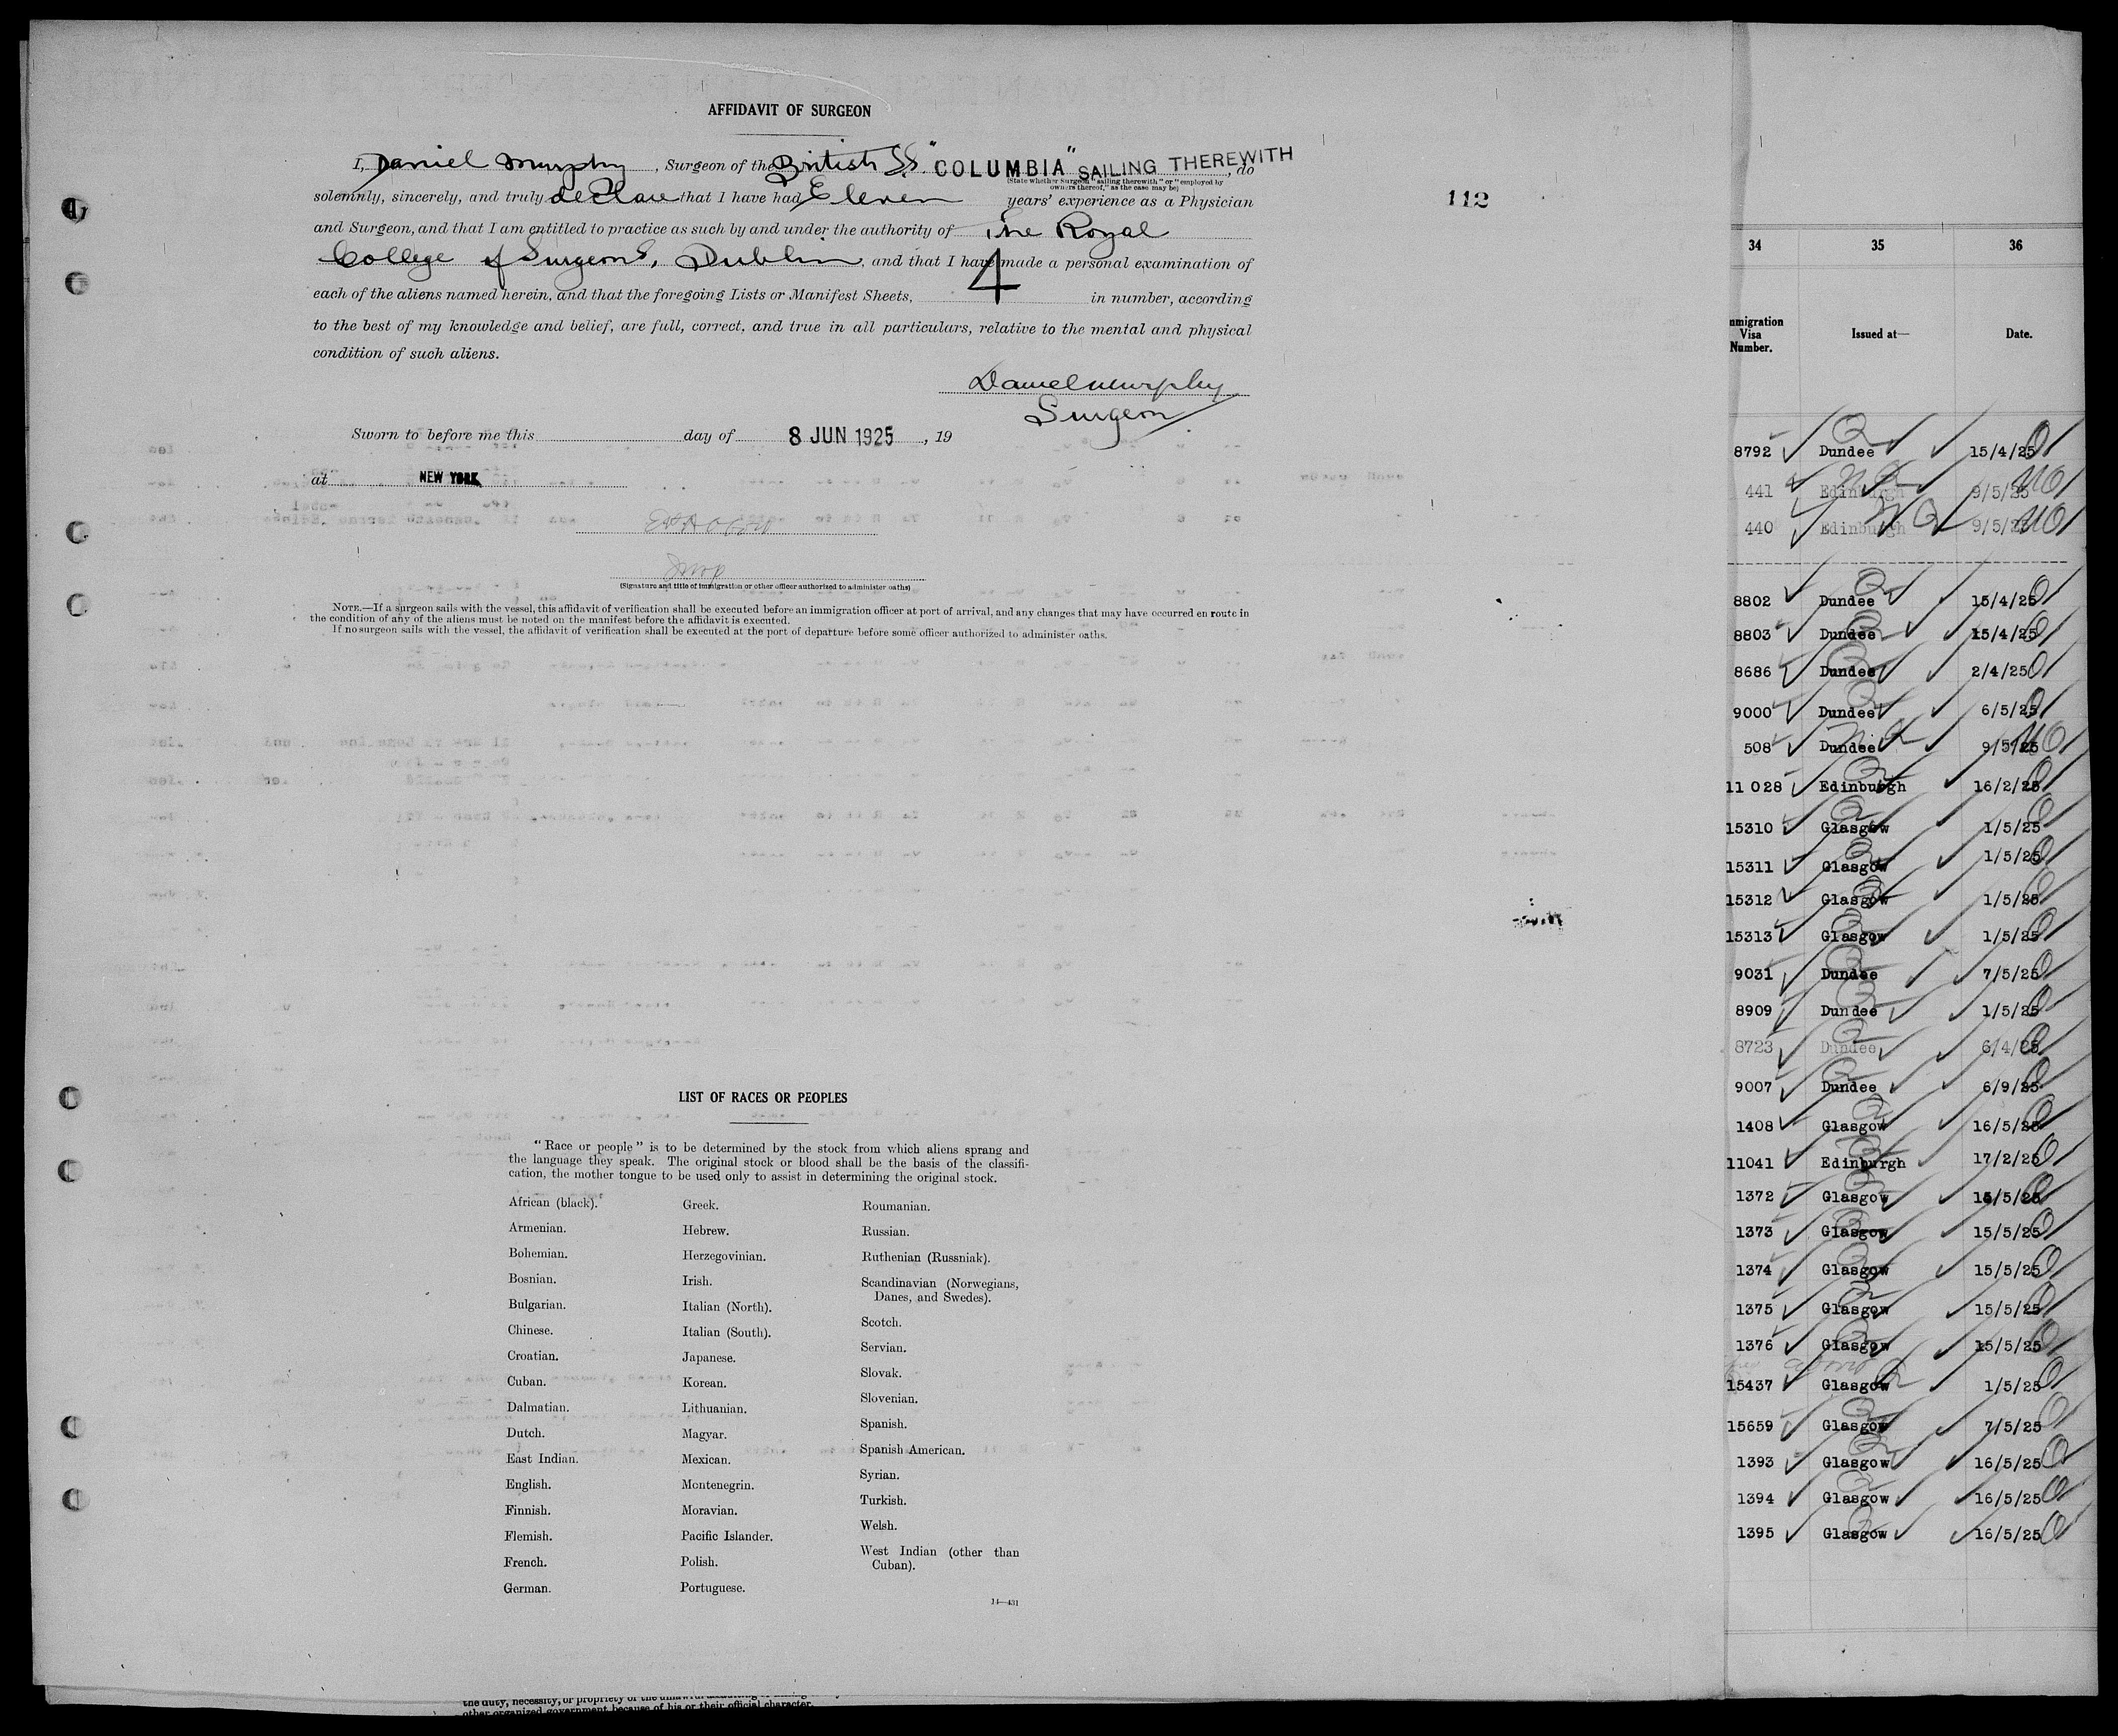 AFFIDAVIT OF SURGEON
I, Daniel Murphy, Surgeon of the British SS. "COLUMBIA" SAILING THEREWITH, do
(State whether Surgeon "sailing therewith" or "employed by
owners thereof," as the case may be)
solemnly, sincerely, and truly declare that I have had Eleven years' experience as a Physician
and Surgeon, and that I am entitled to practice as such by and under the authority of The Royal
College of Surgeons, Dublin, and that I have made a personal examination of
each of the aliens named herein, and that the foregoing Lists or Manifest Sheets, 4 in number, according
to the best of my knowledge and belief, are full, correct, and true in all particulars, relative to the mental and physical
condition of such aliens.
Daniel Murphy
Surgeon
Sworn to before me this day of 8 JUN 1925, 19
at NEW YORK
(Signature and title of immigration or other officer authorized to administer oaths)
NOTE.—If a surgeon sails with the vessel, this affidavit of verification shall be executed before an immigration officer at port of arrival, and any changes that may have occurred en route in
the condition of any of the aliens must be noted on the manifest before the affidavit is executed.
If no surgeon sails with the vessel, the affidavit of verification shall be executed at the port of departure before some officer authorized to administer oaths.
LIST OF RACES OR PEOPLES
"Race or people" is to be determined by the stock from which aliens sprang and
the language they speak. The original stock or blood shall be the basis of the classifi-
cation, the mother tongue to be used only to assist in determining the original stock.
African (black).
Armenian.
Bohemian.
Bosnian.
Bulgarian.
Chinese.
Croatian.
Cuban.
Dalmatian.
Dutch.
East Indian.
English.
Finnish.
Flemish.
French.
German.
Greek.
Hebrew.
Herzegovinian.
Irish.
Italian (North).
Italian (South).
Japanese.
Korean.
Lithuanian.
Magyar.
Mexican.
Montenegrin.
Moravian.
Pacific Islander.
Polish.
Portuguese.
Roumanian.
Russian.
Ruthenian (Russniak).
Scandinavian (Norwegians,
Danes, and Swedes).
Scotch.
Servian.
Slovak.
Slovenian.
Spanish.
Spanish American.
Syrian.
Turkish.
Welsh.
West Indian (other than
Cuban).
14—431
112
34 35 36
mmigration
Visa
Number.
Issued at—
Date.
8792 Dundee 15/4/25
441 Edinburgh 9/5/25
440 Edinburgh 9/5/25
8802 Dundee 15/4/25
8803 Dundee 15/4/25
8686 Dundee 2/4/25
9000 Dundee 6/5/25
508 Dundee 9/5/25
11 028 Edinburgh 16/2/25
15310 Glasgow 1/5/25
15311 Glasgow 1/5/25
15312 Glasgow 1/5/25
15313 Glasgow 1/5/25
9031 Dundee 7/5/25
8909 Dundee 1/5/25
8723 Dundee 6/4/25
9007 Dundee 6/9/25
1408 Glasgow 16/5/25
11041 Edinburgh 17/2/25
1372 Glasgow 15/5/25
1373 Glasgow 15/5/25
1374 Glasgow 15/5/25
1375 Glasgow 15/5/25
1376 Glasgow 15/5/25
15437 Glasgow 1/5/25
15659 Glasgow 7/5/25
1393 Glasgow 16/5/25
1394 Glasgow 16/5/25
1395 Glasgow 16/5/25
the duty, necessity, or propriety of the
other organized government because of his or their official character.